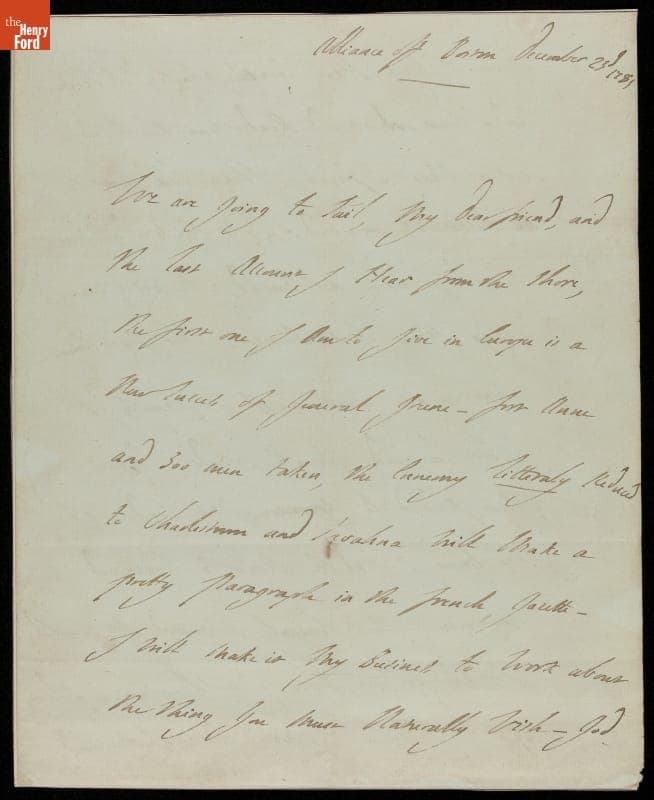 the
Henry
Ford
Alliance off Boston December 23d
1781
We are going to Sail, My dear friend, and
the last Account I Hear from the Shore,
the first one I am to give in Europe is a
New Success of General Greene – fort Anne
and 300 men taken, the Ennemy litteraly Reduced
to Charlestown and Savahna Will Make a
pretty Paragraph in the french Gazette –
I will make it My Business to Work about
the thing You Must Naturally Wish – God